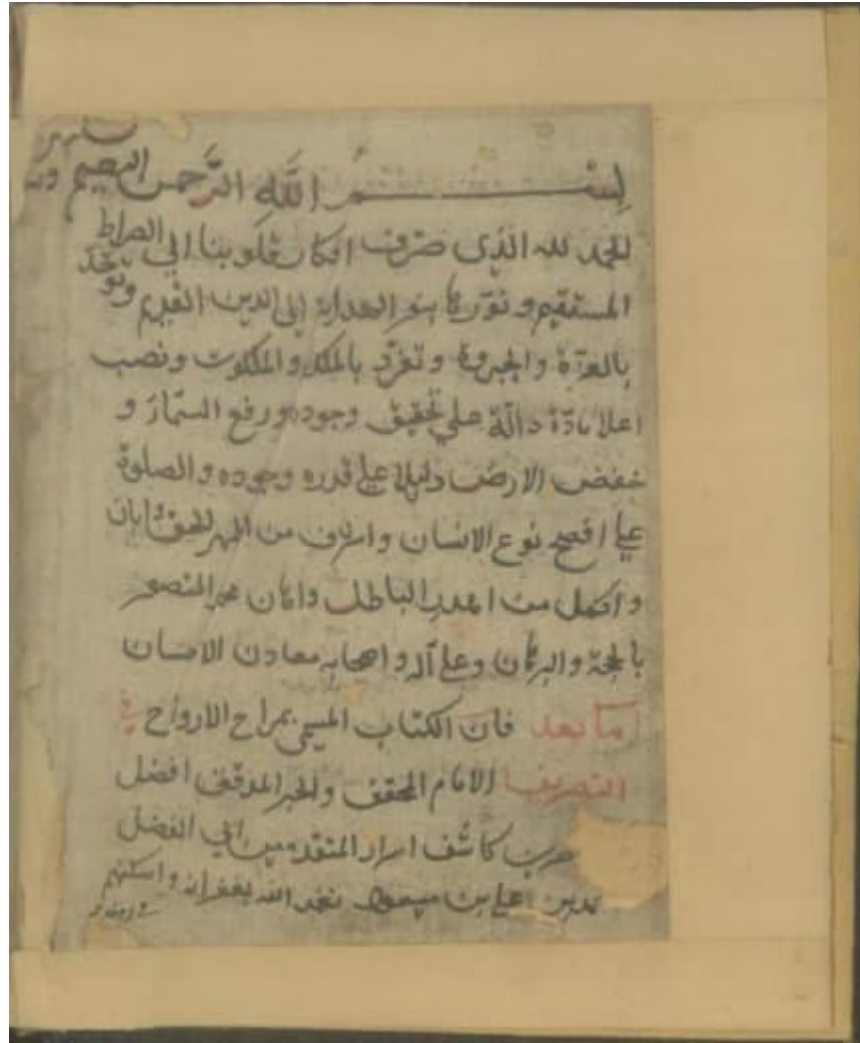 بِسْــــــمِ اللَّهِ الرَّحمن الرحيم
الحمد لله الذي صرف افكار قلوبنا الي الصراط
المستقيم و نورها بنور الهداية الي الدين القويم وتوحد
بالعزة والجبروة وتفرد بالملك والملكوت ونصب
اعلاما دالة علي تحقيق وجوده ورفع السماء و
خفض الارض دليلا علي قدره وجوده والصلوة
علي افصح نوع الانسان و اشرف من اظهر الحق وابان
و اكمل من اهدر الباطل واهان محمد المنصور
بالحجة والبرهان وعلي آله واصحابه معادن الاحسان
اما بعد فان الكتاب المسمي بمراح الارواح في
التصريف للامام المحقق والحبر المدقق افضل
كاشف اسرار المتقدمين ابي الفضل
علي بن مسعود تغمد الله بغفرانه واسكنهم